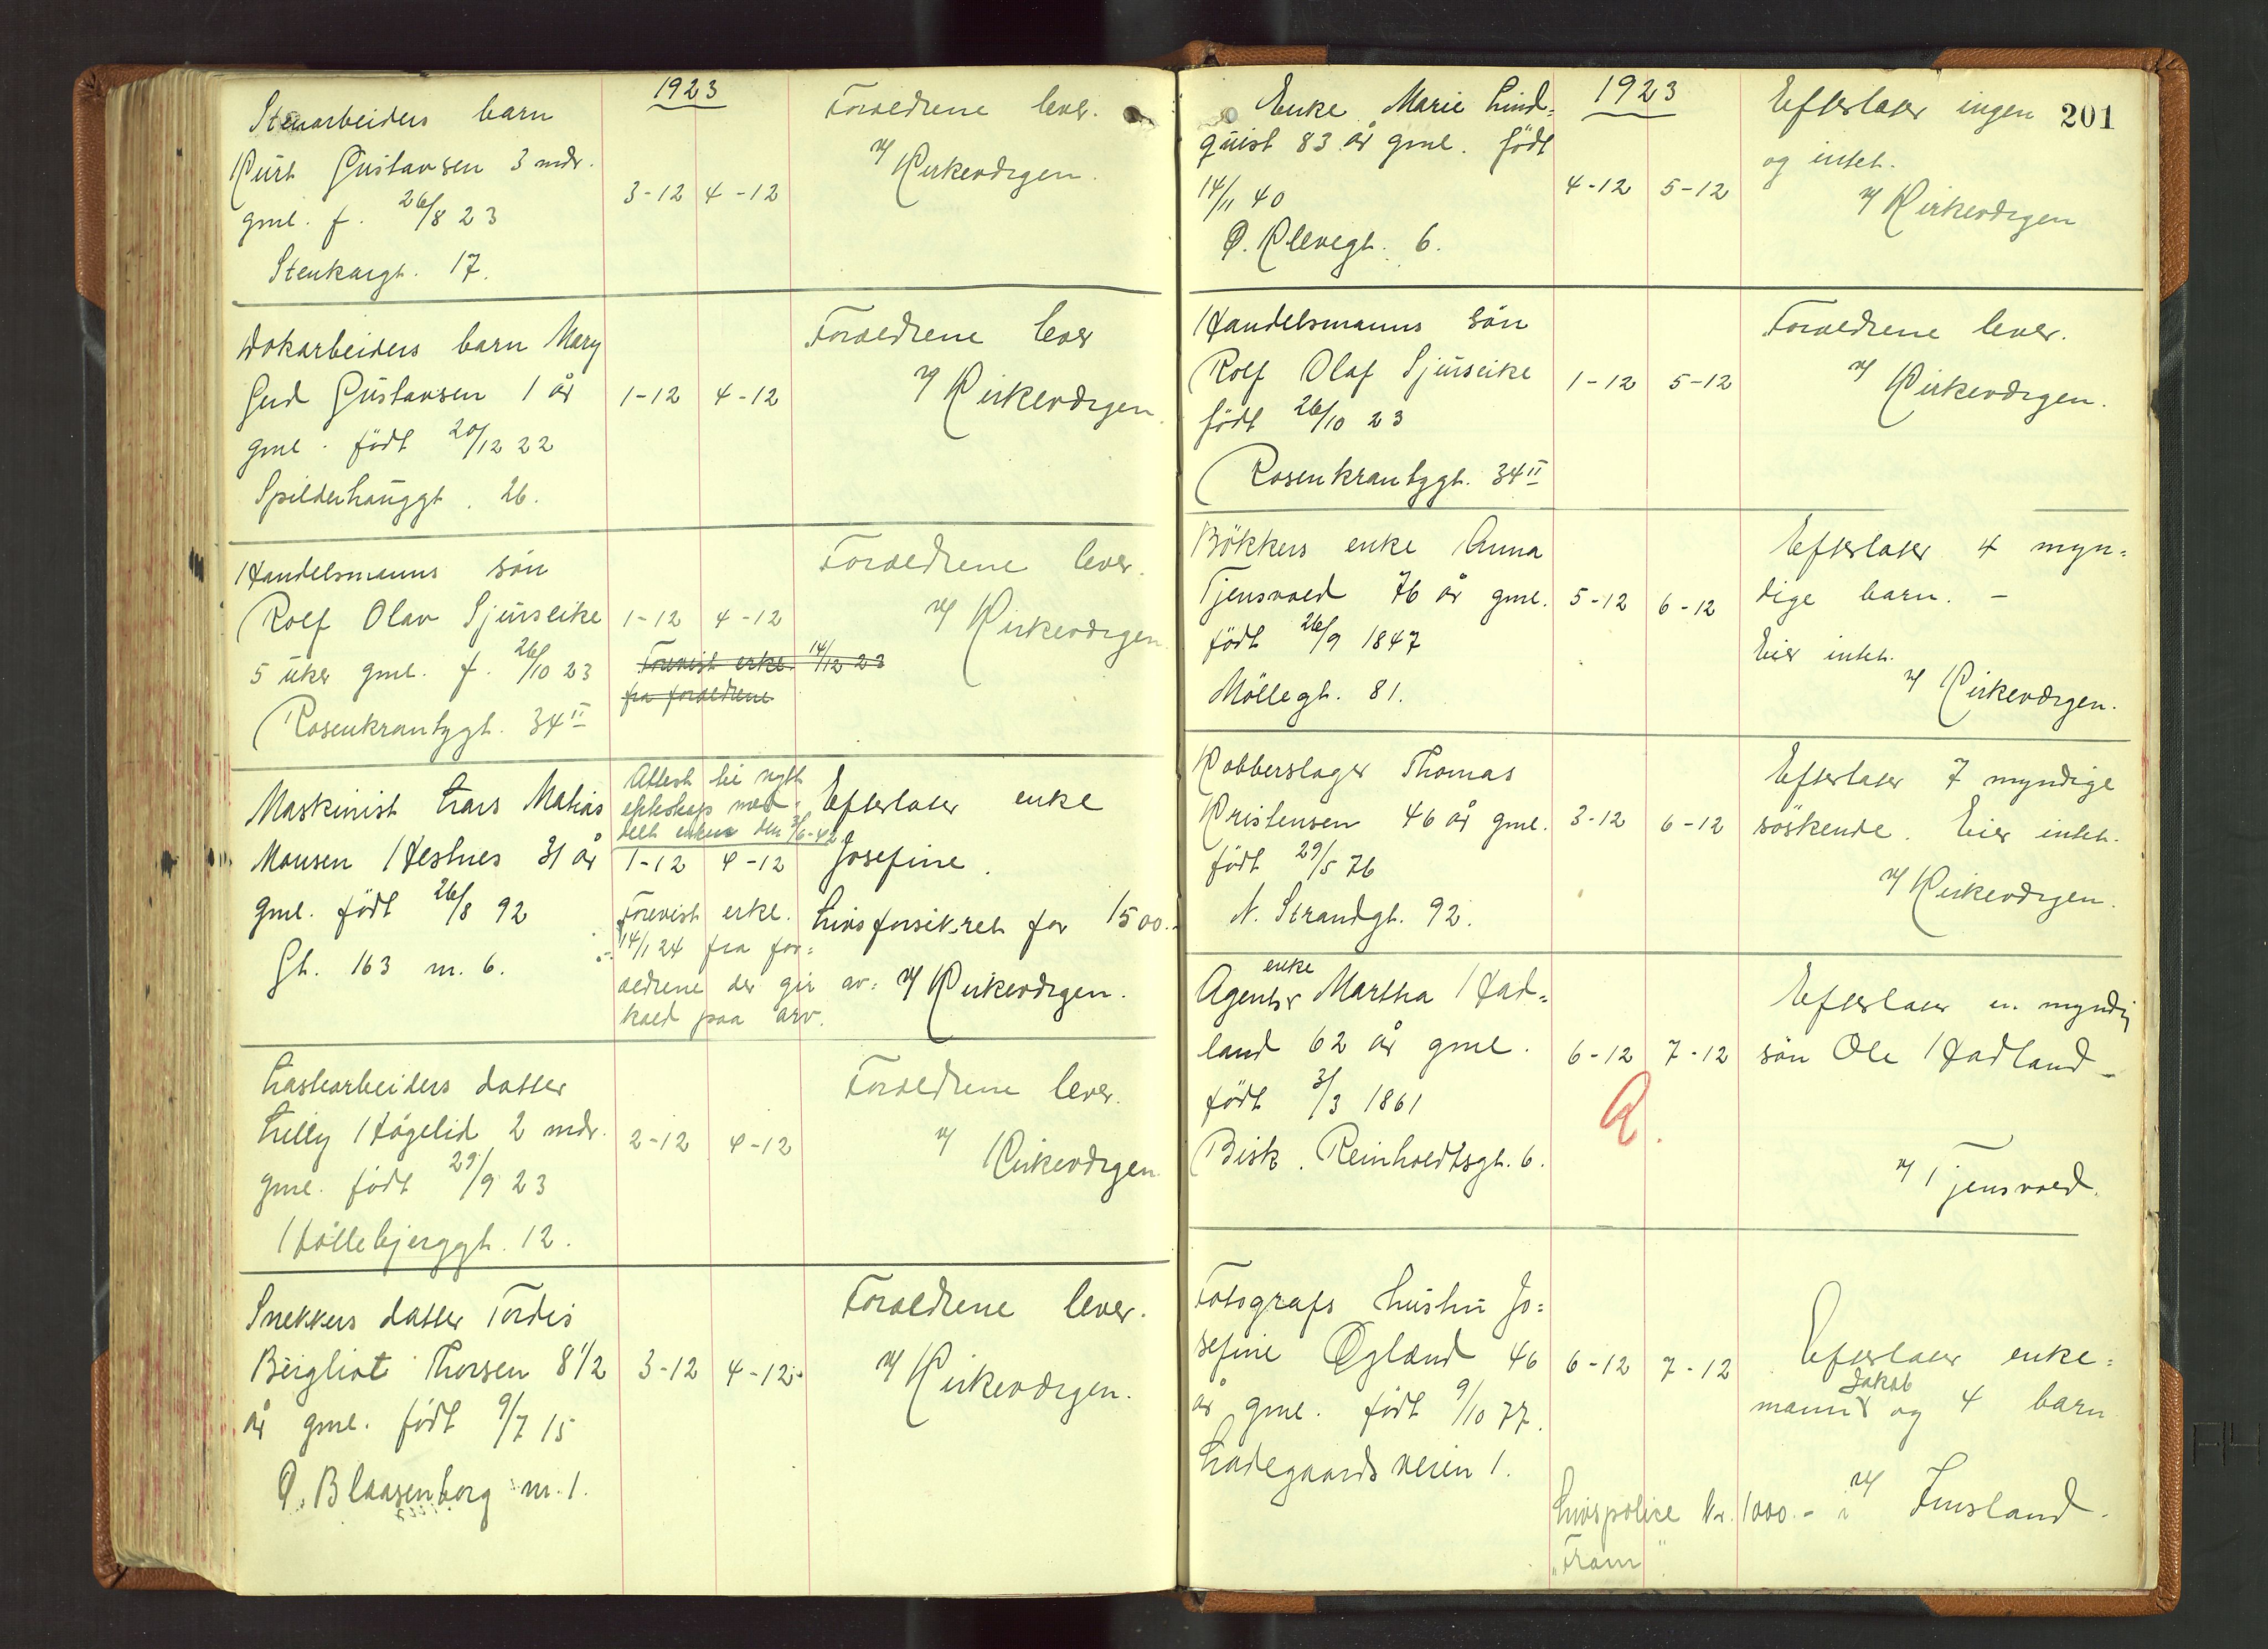 1923
Stenarbeiders barn
Kurt Gustavsen 3 mdr.
gml. f. 26/8 23
Stenkargt. 17.
3-12 4-12
Foreldrene lever.
v/ Kirkevergen.
Dokarbeiders barn Mary
Gud Gustavsen 1 år
gml. født 20/12 22
Spilderhauggt. 26.
1-12 4-12
Foreldrene lever
v/ Kirkevergen.
Handelsmanns søn
Rolf Olav Sjurseike
5 uker gml. f. 26/10 23
Rosenkrantzgt. 34 II
1-12 4-12
Forevist erkl. 14/12 23
fra foreldrene
Foreldrene lever.
v/ Kirkevergen
Maskinist Lars Matias
Monsen Hestnes 31 år
gml. født 26/8 92
Gt. 163 nr. 6.
Attest til nytt
ekteskap med-
delt enken den 3/6-42
1-12 4-12
Forevist erkl.
14/1 24 fra for=
eldrene der gir av=
kald paa arv.
Efterlater enke
Josefine.
Livsforsikret for 1500.-
v/ Kirkevergen.
Lastearbeiders datter
Lilly Høgelid 2 mdr.
gml. født 29/9 23
Høllebjerggt. 12.
2-12 4-12
Foreldrene lever.
v/ Kirkevergen
Snekkers datter Tordis
Bergliot Thorsen 8 1/2
år gml. født 9/7 15
Ø. Blaasenborg nr. 1.
3-12 4-12
Foreldrene lever.
v/ Kirkevergen.
201
1923
Enke Marie Lind=
quist 83 år gml. født
14/11 40
Ø. Klevegt. 6.
4-12 5-12
Efterlater ingen
og intet.
v/ Kirkevergen
Handelsmanns søn
Rolf Olaf Sjurseike
født 26/10 23
Rosenkrantzgt. 34 II
1-12 5-12
Foreldrene lever.
v/ Kirkevergen.
Bøkkers enke Anna
Tjensvold 76 år gml.
født 26/9 1847
Møllegt. 81.
5-12 6-12
Efterlater 4 myn=
dige barn. -
Eier intet.
v/ Kirkevergen.
Kobberslager Thomas
Kristensen 46 år gml.
født 29/5 76
N. Strandgt. 92.
3-12 6-12
Efterlater 7 myndige
søskende. Eier intet.
v/ Kirkevergen.
enke
Agents Martha Had=
land 62 år gml.
født 3/3 1861
Bisk. Reinholdtsgt. 6.
6-12 7-12
Efterlater en myndig
søn Ole Hadland -
v/ Tjensvold.
Fotografs hustru Jo=
sefine Øglænd 46
år gml. født 9/10 77.
Ladegaardsveien 1.
6-12 7-12
Efterlater enke=
Jakob
mann og 4 barn
v/ Finsland.
Livspolice kr. 1000.- i
"Fram"